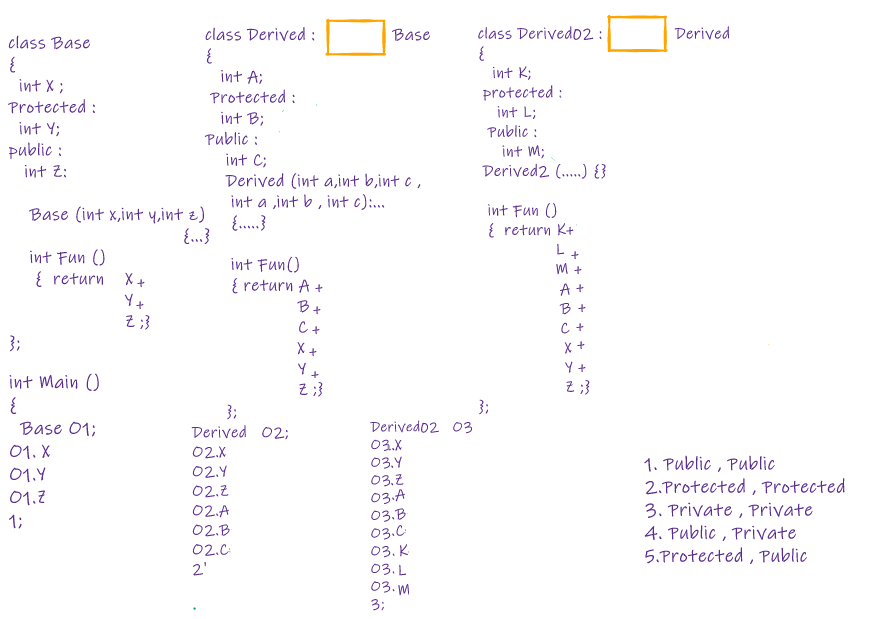 class Base
{
int X ;
Protected :
int Y;
public :
int Z:
Base (int x,int y,int z)
{...}
int Fun ()
{ return X +
Y +
Z ;}
};
int Main ()
{
Base O1;
O1. X
O1.Y
O1.Z
1;
class Derived : Base
{
int A;
Protected :
int B;
Public :
int C;
Derived (int a,int b,int c ,
int a ,int b , int c):...
{.....}
int Fun()
{ return A +
B +
C +
X +
Y +
Z ;}
};
Derived O2;
O2.X
O2.Y
O2.Z
O2.A
O2.B
O2.C
2'
class Derived02 : Derived
{
int K;
protected :
int L;
Public :
int M;
Derived2 (.....) {}
int Fun ()
{ return K+
L +
M +
A +
B +
C +
X +
Y +
Z ;}
};
Derived02 O3
O3.X
O3.Y
O3.Z
O3.A
O3.B
O3.C
O3. K
O3. L
O3. M
3;
1. Public , Public
2.Protected , Protected
3. Private , Private
4. Public , Private
5.Protected , Public